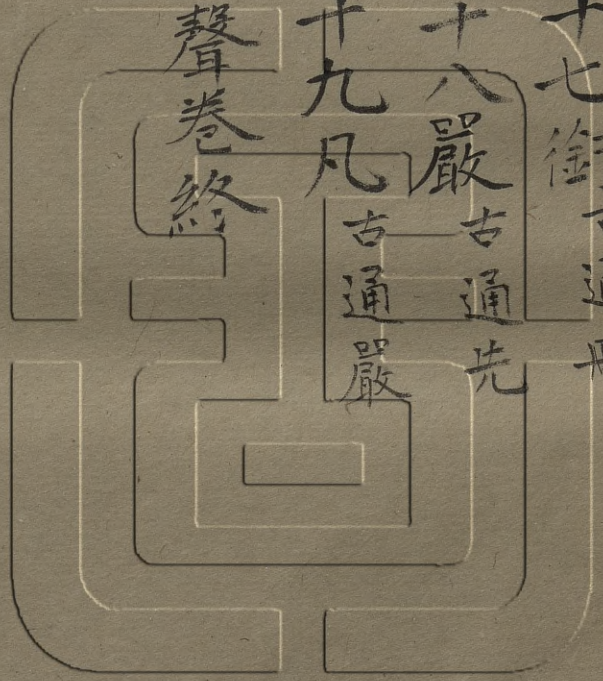 十七銜古通
十八嚴古通先
十九凡古通嚴
聲卷終